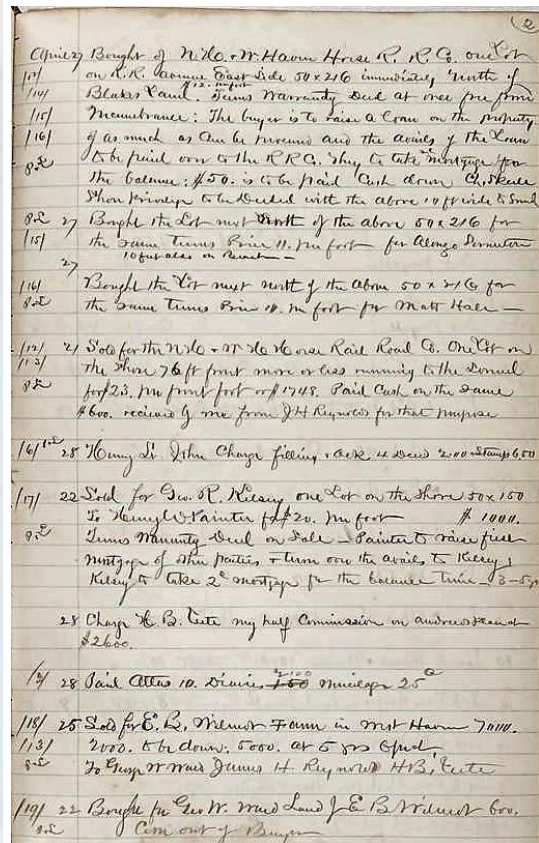 2
April 27 Bought of N. H. & W Haven Horse R. R. Co. one Lot
/13/ on R.R. Avenue East Side 50 x 216 immediately North of
/14/ Blakes Land. $12. Terms Warranty Deed at once free from
/15/ Incumbrance: The buyer is to raise a Loan on the property
/16/ of as much as can be procured and the avails of the Loan
to be paid over to the R R C. They to take mortgage for
the balance: $50. is to be paid Cash down
Shore privilege to be Deeded with the above 10 ft wide to
27 Bought the Lot next North of the above 50 x 216 for
/15/ the same terms Price 11. per foot for Alonzo
10 feet also on
27
/16/ Bought the Lot next north of the above 50 x 216 for
the same terms Price 10. per foot for Matt Hale —
/12/ 21 Sold for the N H & W H Horse Rail Road Co. One Lot on
/13/ the Shore 76 ft front more or less running to the
for $23. per front foot or $1748. Paid Cash on the same
$600. received by me from J H Reynolds for that purpose
/6/ 28 Henry St. John Charge filling & ack 4 Deeds 2.00 Stamps 6.50
/17/ 22 Sold for Geo. R. Kelsey one Lot on the Shore 50 x 150
To Henry W Painter for $20. per foot $1000.
Terms Warranty Deed on Sale — Painter to raise first
mortgage of other parties & turn over the avails to Kelsey;
Kelsey to take 2d mortgage for the balance time — 3-5 yrs
28 Charge H. B. Tuttle my half Commission on
$2600.
/2/ 28 Paid 10. 25
/18/ 25 Sold for E. B. Wilmot Farm in West Haven 7000.
/13/ 2000. to be down. 5000. at 5 yrs
To George W Ward James H Reynolds H B,
/19/ 22 Bought for Geo W. Ward Land of E B Wilmot 600.
Com out of Buyer